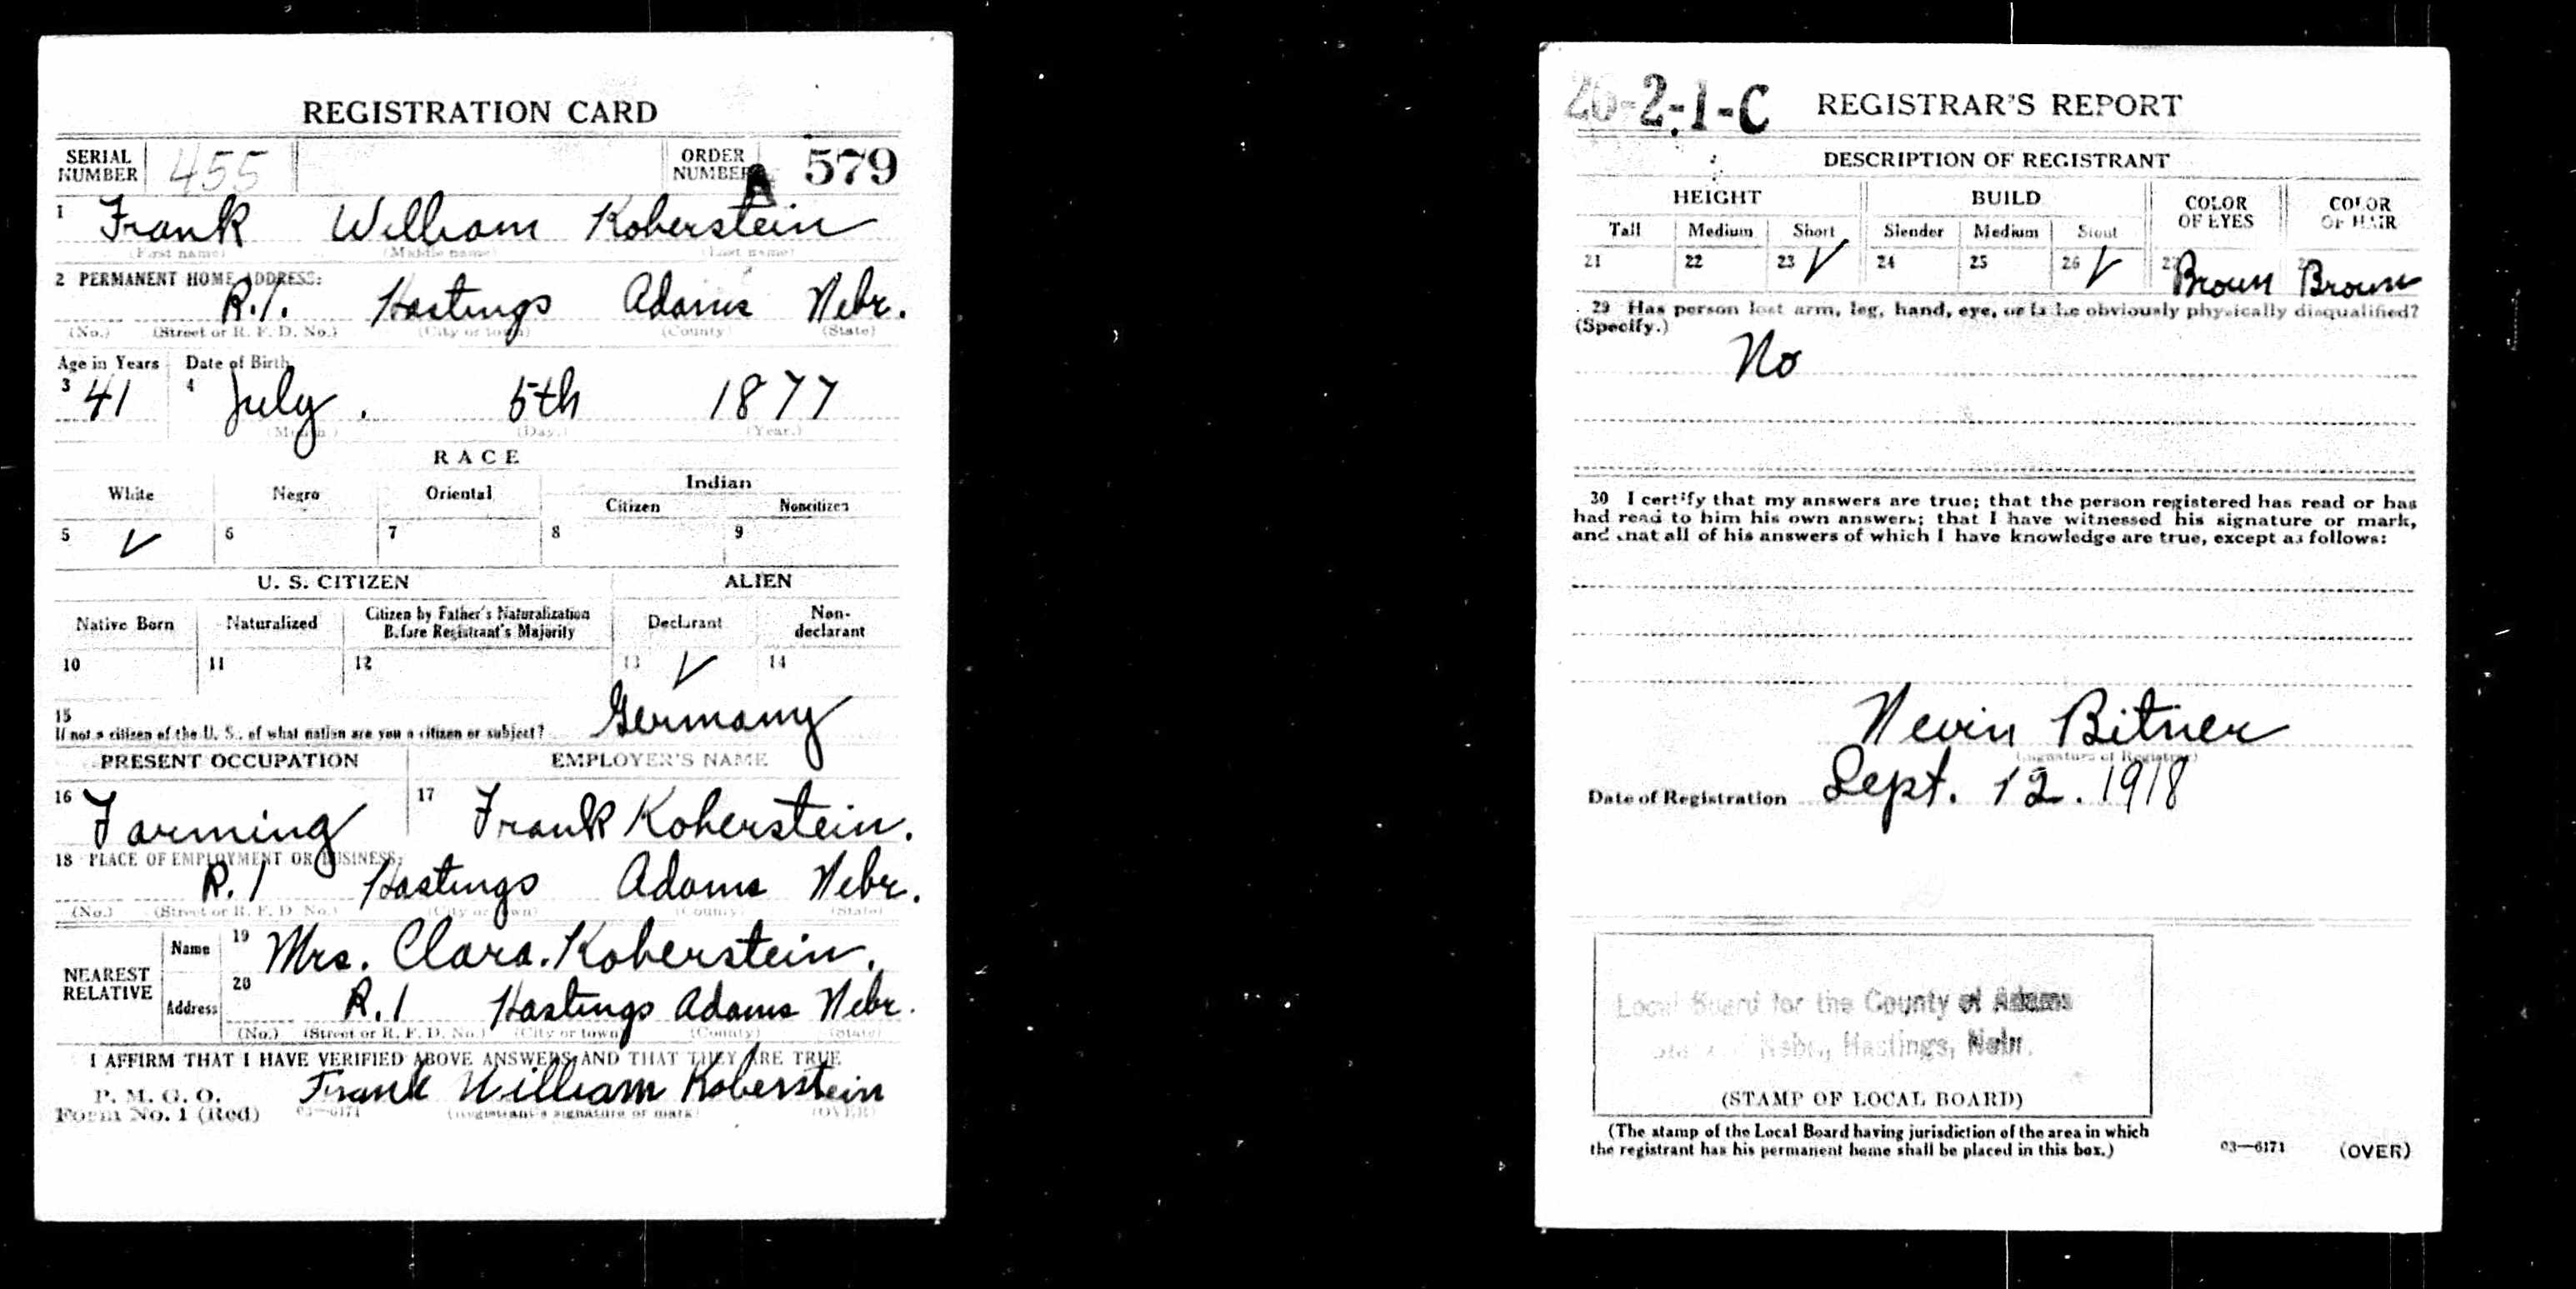 REGISTRATION CARD
SERIAL NUMBER 455 ORDER NUMBER A 579
1 Frank William Koberstein
(First name) (Middle name) (Last name)
2 PERMANENT HOME ADDRESS:
R.1. Hastings Adams Nebr.
(No.) (Street or R. F. D. No.) (City or town) (County) (State)
Age in Years Date of Birth
3 41 4 July. 5th 1877
(Month) (Day.) (Year.)
RACE
White Negro Oriental Indian
Citizen Noncitizen
5 ✓ 6 7 8 9
U. S. CITIZEN ALIEN
Native Born Naturalized Citizen by Father's Naturalization Before Registrant's Majority Declarant Non-declarant
10 11 12 13 ✓ 14
15
If not a citizen of the U. S., of what nation are you a citizen or subject? Germany
PRESENT OCCUPATION EMPLOYER'S NAME
16 Farming 17 Frank Koberstein.
18 PLACE OF EMPLOYMENT OR BUSINESS:
R.1 Hastings Adams Nebr.
(No.) (Street or R. F. D. No.) (City or town) (County) (State)
NEAREST RELATIVE Name 19 Mrs. Clara. Koberstein.
Address 20 R.1 Hastings Adams Nebr.
(No.) (Street or R. F. D. No.) (City or town) (County) (State)
I AFFIRM THAT I HAVE VERIFIED ABOVE ANSWERS AND THAT THEY ARE TRUE
P. M. G. O.
Form No. 1 (Red) 03—6171 Frank William Koberstein
(Registrant's signature or mark) (OVER)
26-2-1-C REGISTRAR'S REPORT
DESCRIPTION OF REGISTRANT
HEIGHT BUILD COLOR OF EYES COLOR OF HAIR
Tall Medium Short Slender Medium Stout
21 22 23 ✓ 24 25 26 ✓ 27 Brown Brown
29 Has person lost arm, leg, hand, eye, or is he obviously physically disqualified?
(Specify.)
No
30 I certify that my answers are true; that the person registered has read or has
had read to him his own answers; that I have witnessed his signature or mark,
and that all of his answers of which I have knowledge are true, except as follows:
Nevin Bitner
(Signature of Registrar)
Date of Registration Sept. 12. 1918
Local Board for the County of Adams
Nebr., Hastings, Nebr.
(STAMP OF LOCAL BOARD)
(The stamp of the Local Board having jurisdiction of the area in which
the registrant has his permanent home shall be placed in this box.)
03—6171 (OVER)